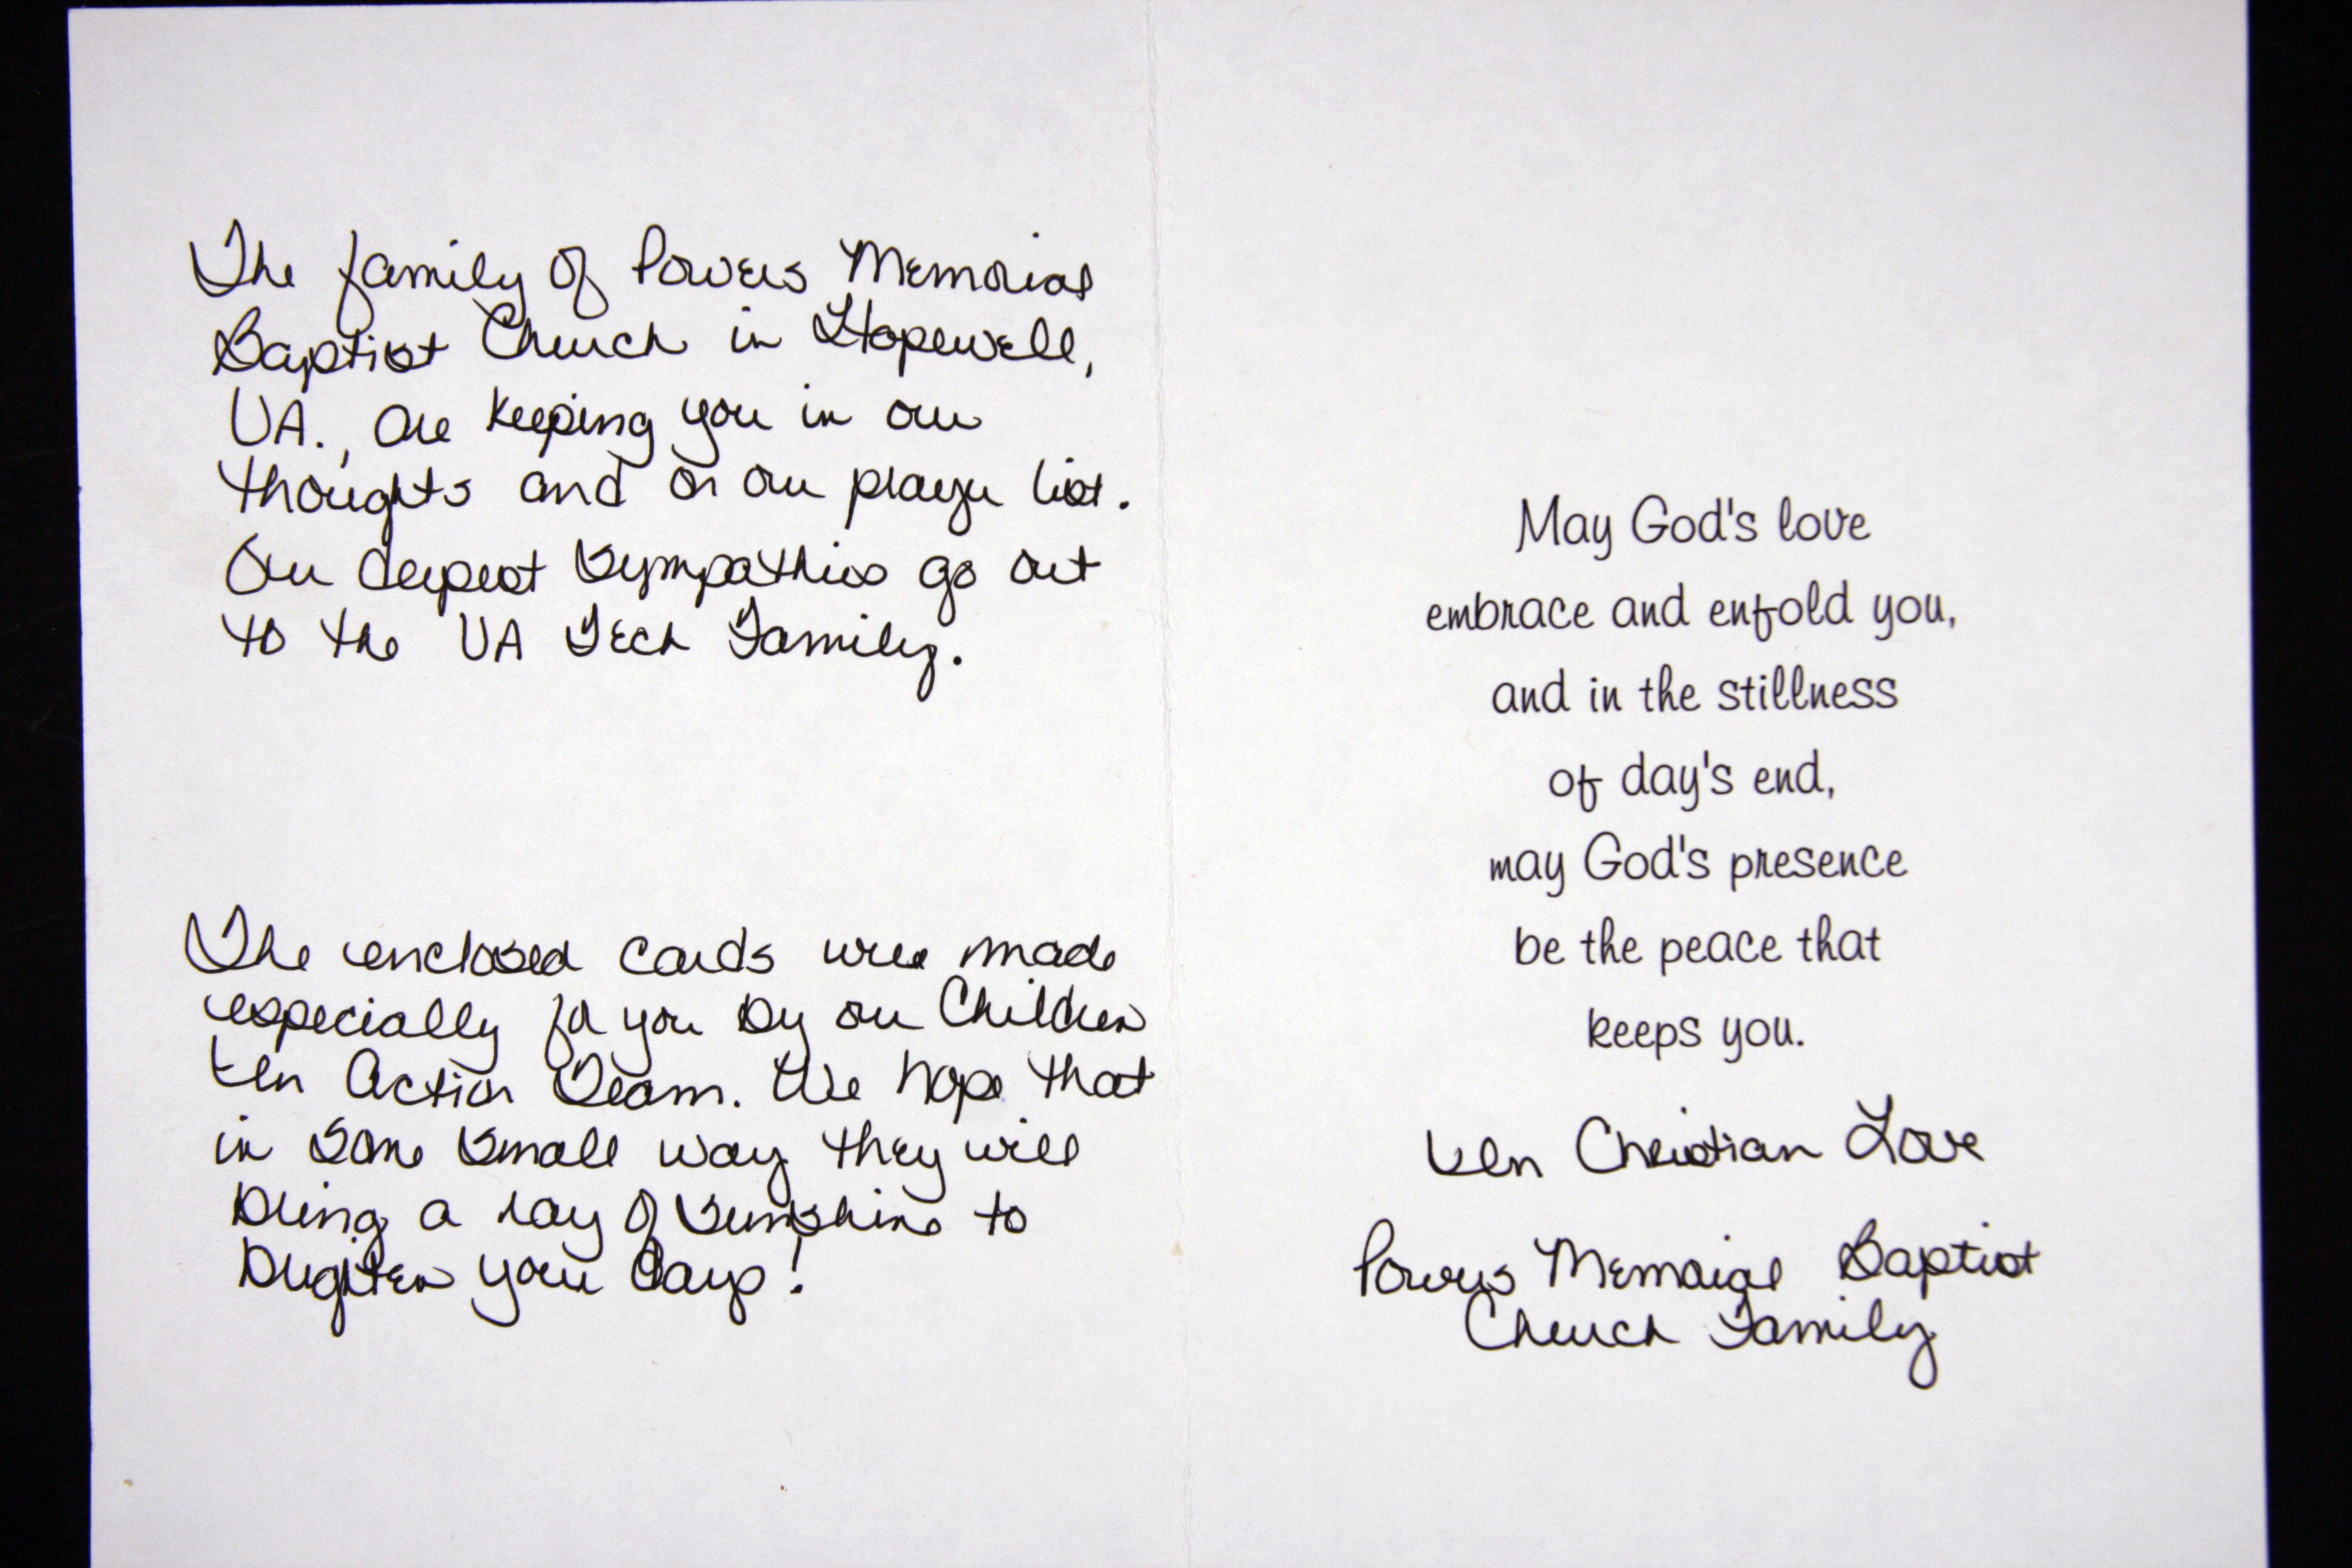 The family of Powers Memorial
Baptist Church in Hopewell,
VA., are keeping you in our
thoughts and on our prayer list.
Our deepest sympathies go out
to the VA Tech Family.
The enclosed cards were made
especially for you by our Children
In Action Team. We hope that
in some small way they will
bring a ray of sunshine to
brighten your days!
May God's love
embrace and enfold you,
and in the stillness
of day's end,
may God's presence
be the peace that
keeps you.
In Christian Love
Powers Memorial Baptist
Church Family